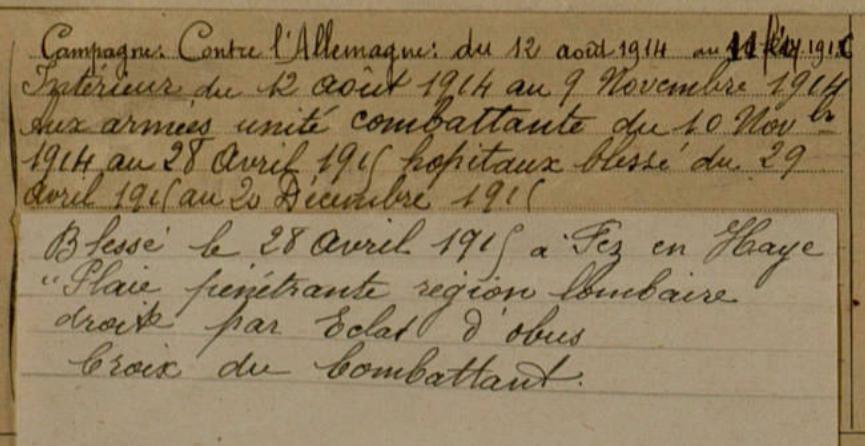 Campagne: Contre l'Allemagne: du 12 août 1914 au 11 1915
Intérieur du 12 août 1914 au 9 Novembre 1914
Aux armées unité combattante du 10 Nov bre
1914 au 28 Avril 1915 hopitaux blessé du 29
Avril 1915 au 20 Décembre 1915
Blessé le 28 Avril 1915 à Fez en Haye
"Plaie pénétrante région lombaire
droite par Eclat d'obus
Croix du Combattant.